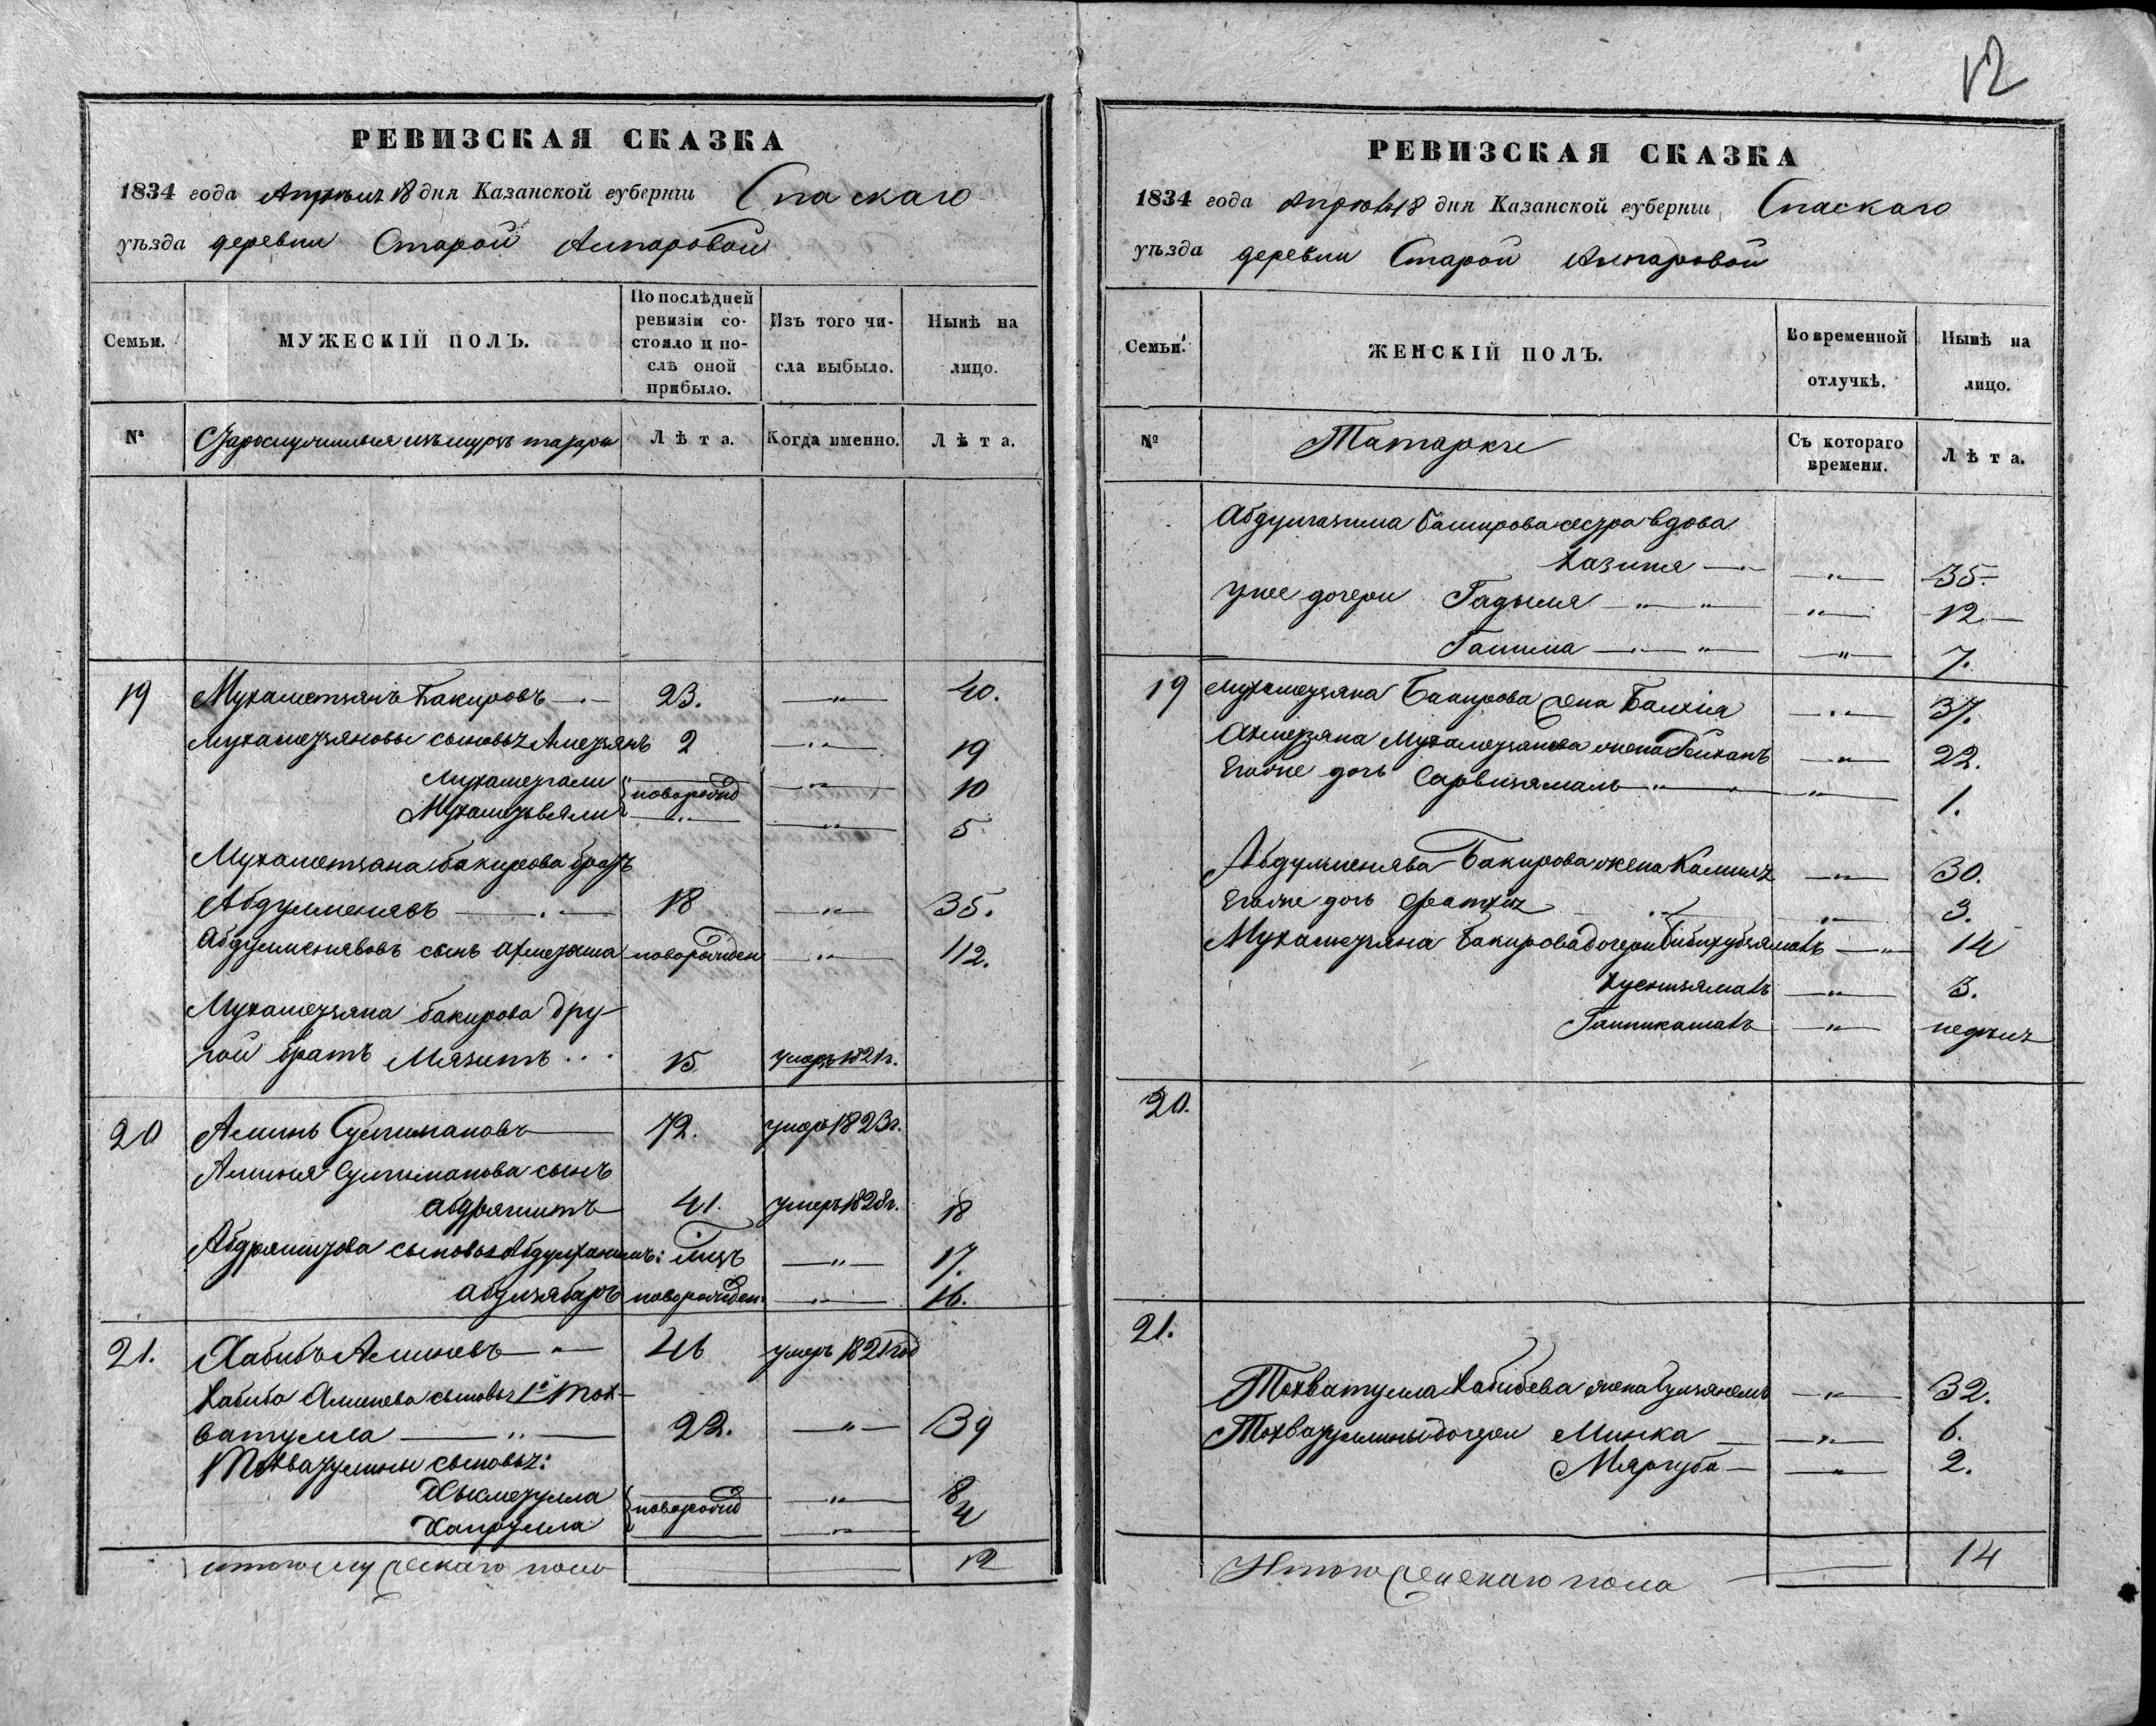 12
РЕВИЗСКАЯ СКАЗКА
1834 года Апреля 18 дня Казанской губернiи Спаскаго
уѣзда деревни Старой Амзаровой
Семьи.
МУЖЕСКIЙ ПОЛЪ.
По послѣдней ревизiи состояло и послѣ оной прибыло.
Изъ того числа выбыло.
Нынѣ на лицо.
№
татары
Лѣта.
Когда именно.
Лѣта.
19 Мухаметзянъ Бакировъ 23. 40.
Мухамезяновы сыновья Амезянъ 2 19
Мухамезгали новорожд 10
Мухамезвяли 5
Мухаметзяна Бакирова братъ
Абдулменявъ 18 35.
Абдулменявовъ сынъ новорожден 12.
Мухамезяна Бакирова дру-
гой братъ Мязитъ 15 умеръ 1821 г.
20 Аминь Сулимановъ 72. умеръ 1823 г.
Аминя Сулиманова сынъ
Абдряшитъ 41. умеръ 1828 г. 18
Абдряшизова сыновья 17.
новорожден 16.
21. Хабибъ Аминевъ 46 умеръ 1821 год
Хабиба Аминева сыновья 1й Тох-
ватулла 22. 39
Тохвазулины сыновья:
Хикмезулла новорожд 8
Хайрулла 4
итого мужескаго пола 12
РЕВИЗСКАЯ СКАЗКА
1834 года Апреля 18 дня Казанской губернiи, Спаскаго
уѣзда деревни Старой Амзаровой
Семьи.
ЖЕНСКIЙ ПОЛЪ.
Во временной отлучкѣ.
Нынѣ на лицо.
№
Татарки
Съ котораго времени.
Лѣта.
Башырова сестра вдова
Хазимя 35.
У нее дочери Гадыля 12
Галима 7.
19 Мухамезяна Бакирова жена Балхия 37.
Ахмезяна Мухамезянова жена Рейханъ 22.
Его же дочь Сарвизямалъ 1.
Абдулменява Бакирова жена Камиля 30.
Его же дочь Фатхия 3.
Мухамезяна Бакирова дочери 14
Хуснизямалъ 3.
недель
20.
21.
Тохватулла Хабибева жена 32.
Тохвазулины дочери Минка 6.
Мяргуба 2.
Итого женскаго пола 14